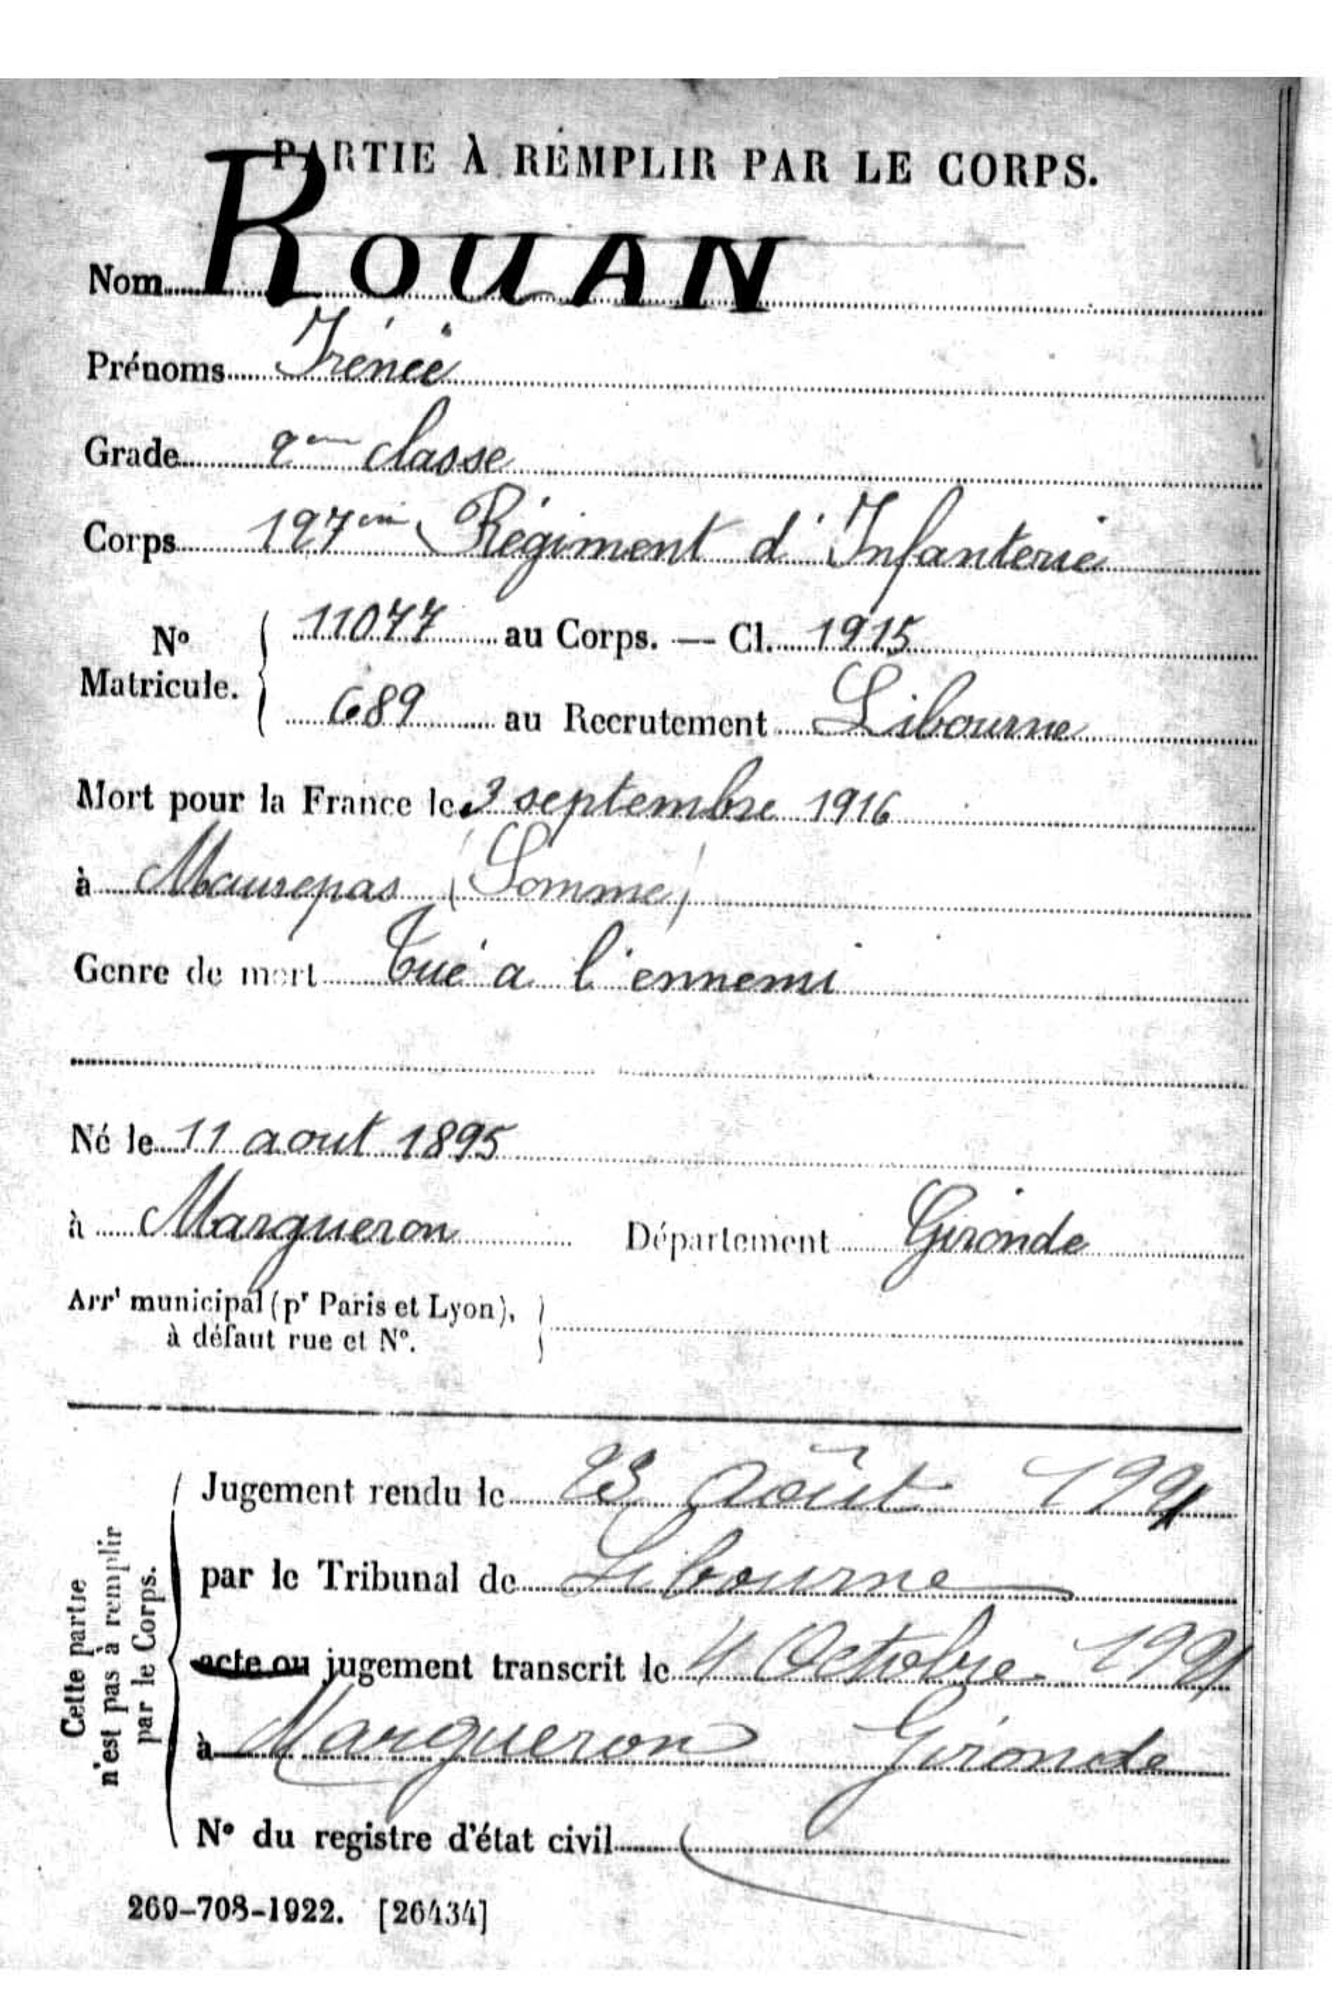 PARTIE À REMPLIR PAR LE CORPS.
Nom ROUAN
Prénoms Irénée
Grade 2me classe
Corps 127me Régiment d'Infanterie
No Matricule. { 11077 au Corps. — Cl. 1915
689 au Recrutement Libourne
Mort pour la France le 3 septembre 1916
à Maurepas (Somme)
Genre de mort Tué a l'ennemi
Né le 11 aout 1895
à Margueron Département Gironde
Arrt municipal (pr Paris et Lyon), }
à défaut rue et No.
Cette partie n'est pas à remplir par le Corps.
Jugement rendu le 23 Août 1921
par le Tribunal de Libourne
acte ou jugement transcrit le 4 Octobre 1921
à Margueron Gironde
No du registre d'état civil
269-708-1922. [26434]